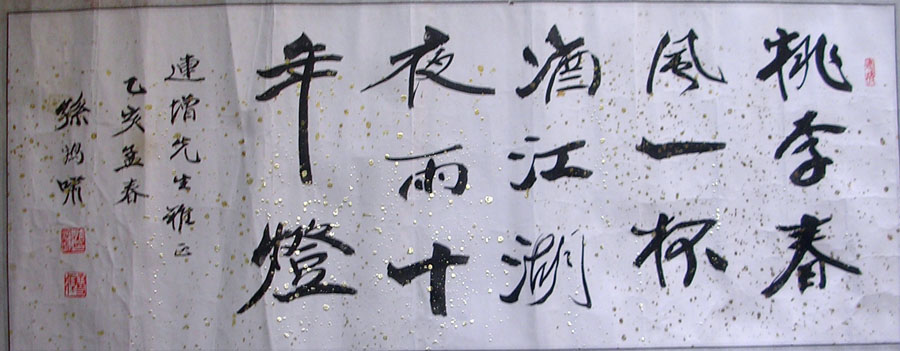 桃李春
風一杯
酒江湖
夜雨十
年燈
連增先生雅正
乙亥孟春
孫
嘯